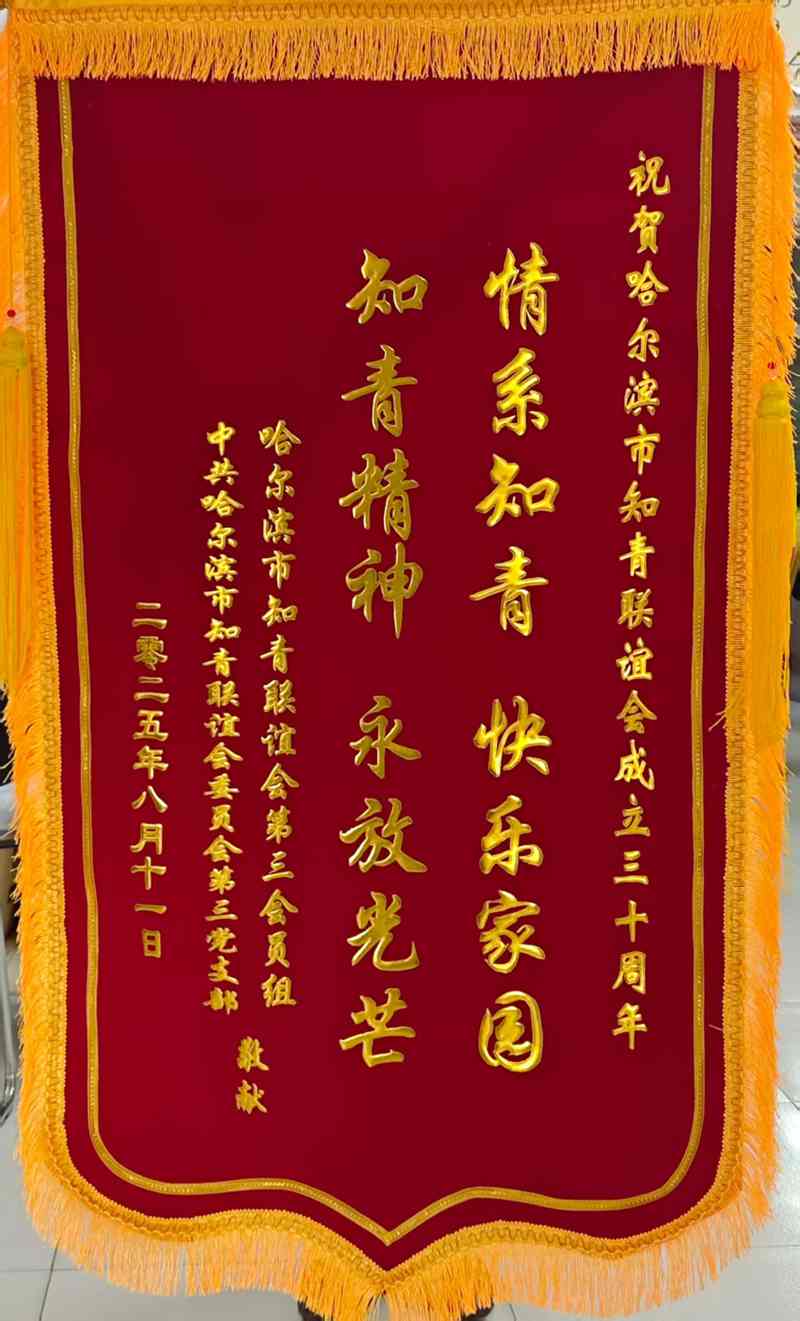 祝贺哈尔滨市知青联谊会成立三十周年
情系知青 快乐家园
知青精神 永放光芒
哈尔滨市知青联谊会第三会员组
中共哈尔滨市知青联谊会委员会第三党支部
敬献
二零二五年八月十一日